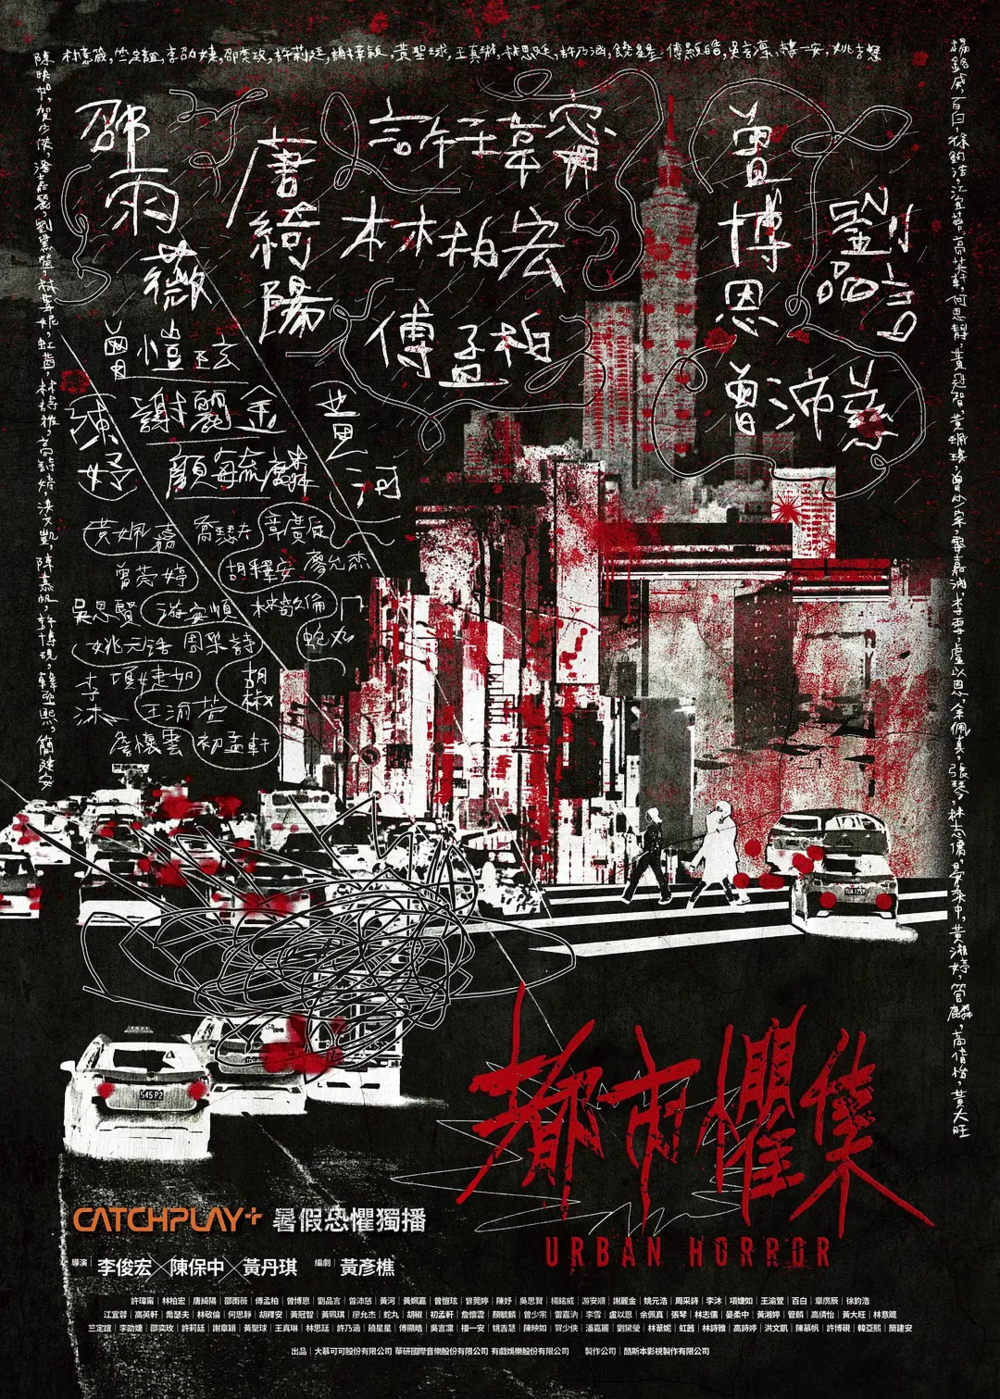 林意箴,竺定誼,李劭婕,邵奕玫,許莉廷,謝章穎,黃聖球,王真琳,林思廷,許乃涵,饒星星,傅顯皓,吳言凜,樓一安,姚吉慧
陳映如,賀少俠,潘嘉麗,劉黛瑩,林葦妮,虹茜,林詩雅,高詩婷,洪文凱,陳慕帆,許博硯,韓亞熙,簡建安
楊銘威,百白,徐鈞浩,江宜蓉,高英軒,何思靜,黃冠智,黃珮琪,曾少宗,雷嘉汭,李雪,盧以恩,余佩真,張琴,林志儒,晏柔中,黃湘婷,管麟,高倩怡,黃大旺
邵雨薇
唐綺陽
許瑋甯
林柏宏
傅孟柏
曾博恩
劉品言
曾沛慈
曾愷玹
陳妤
謝麗金
顏毓麟
黃河
黃姵嘉
喬瑟夫
章廣辰
曾莞婷
胡釋安
廖允杰
吳思賢
游安順
林敬倫
姚元浩
周采詩
蛇丸
李沐
項婕如
胡椒
王渝萱
詹懷雲
初孟軒
都市懼集
URBAN HORROR
CATCHPLAY+ 暑假恐懼獨播
導演 李俊宏×陳保中×黃丹琪 編劇 黃彥樵
許瑋甯 | 林柏宏 | 唐綺陽 | 邵雨薇 | 傅孟柏 | 曾博恩 | 劉品言 | 曾沛慈 | 黃河 | 黃姵嘉 | 曾愷玹 | 曾莞婷 | 陳妤 | 吳思賢 | 楊銘威 | 游安順 | 謝麗金 | 姚元浩 | 周采詩 | 李沐 | 項婕如 | 王渝萱 | 百白 | 章廣辰 | 徐鈞浩
江宜蓉 | 高英軒 | 喬瑟夫 | 林敬倫 | 何思靜 | 胡釋安 | 黃冠智 | 黃珮琪 | 廖允杰 | 蛇丸 | 胡椒 | 初孟軒 | 詹懷雲 | 顏毓麟 | 曾少宗 | 雷嘉汭 | 李雪 | 盧以恩 | 余佩真 | 張琴 | 林志儒 | 晏柔中 | 黃湘婷 | 管麟 | 高倩怡 | 黃大旺 | 林意箴
竺定誼 | 李劭婕 | 邵奕玫 | 許莉廷 | 謝章穎 | 黃聖球 | 王真琳 | 林思廷 | 許乃涵 | 饒星星 | 傅顯皓 | 吳言凜 | 樓一安 | 姚吉慧 | 陳映如 | 賀少俠 | 潘嘉麗 | 劉黛瑩 | 林葦妮 | 虹茜 | 林詩雅 | 高詩婷 | 洪文凱 | 陳慕帆 | 許博硯 | 韓亞熙 | 簡建安
出品 | 大慕可可股份有限公司 華研國際音樂股份有限公司 有戲娛樂股份有限公司 製作公司 | 酷斯本影視製作有限公司